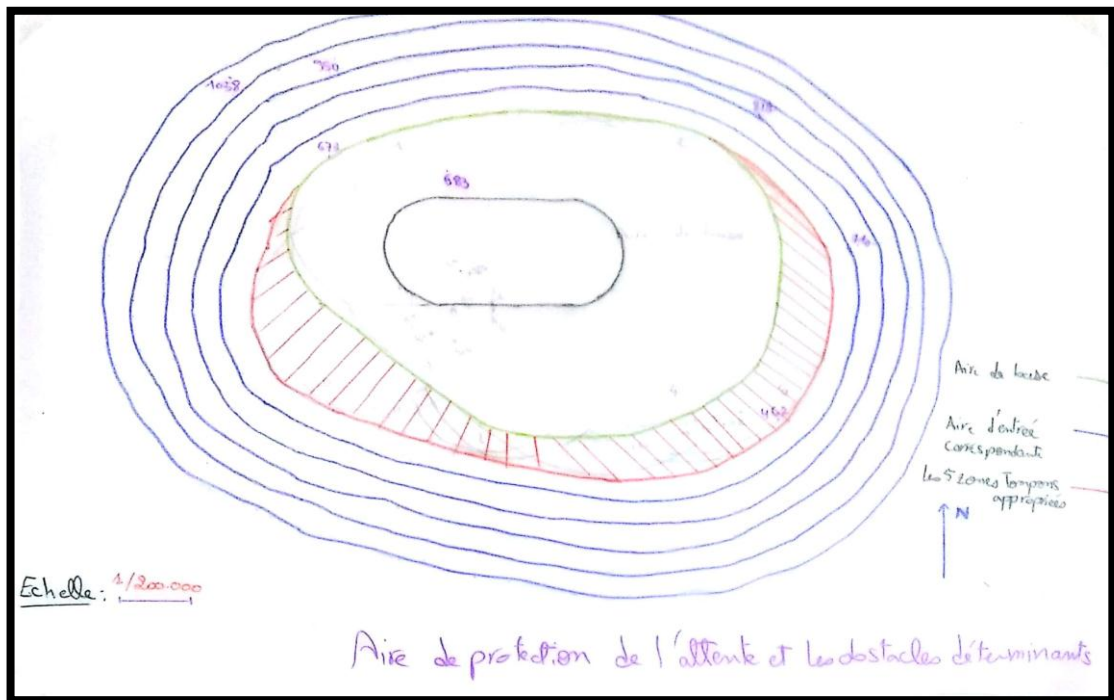 1038
950
678
683
462
Aire de base
Aire d'entrée
correspondante
Les 5 zones Tampons
appropriées
N
Echelle: 1/200.000
Aire de protection de l'attente et les obstacles déterminants